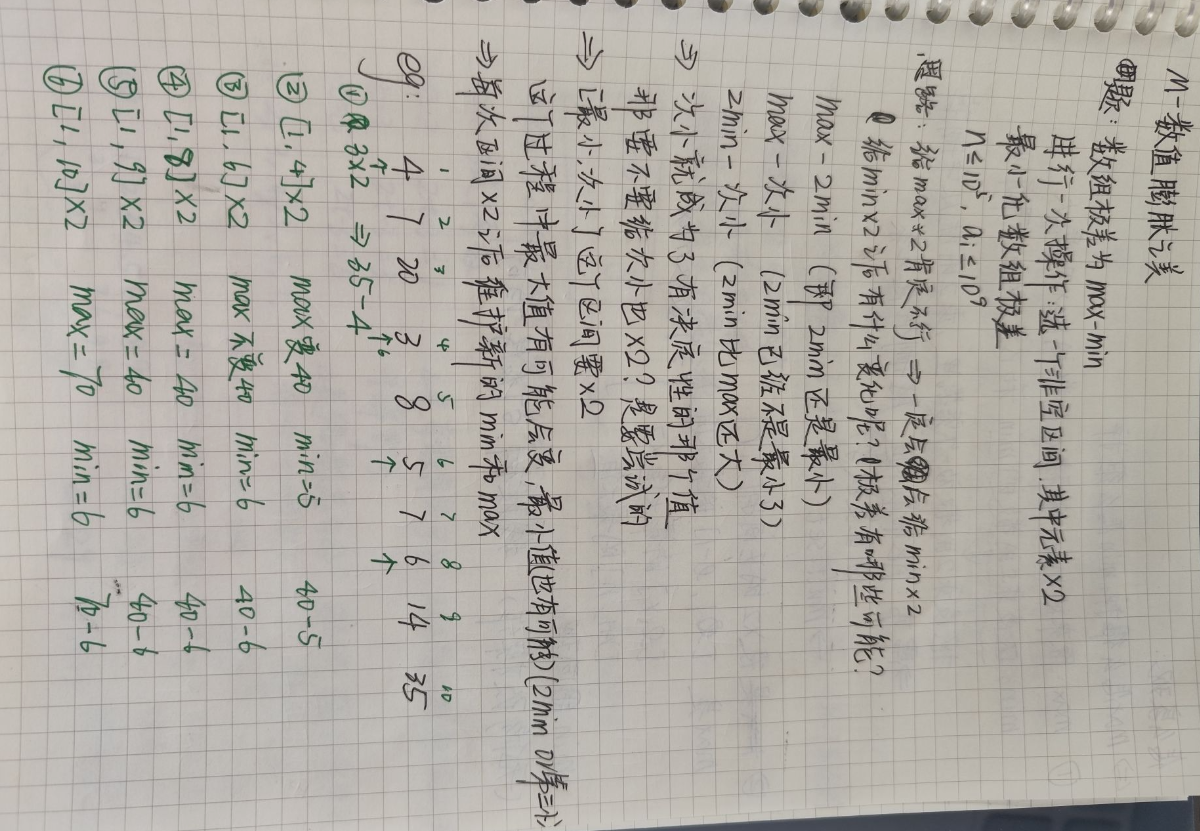 M-数值膨胀之美
题: 数组极差为 max-min
进行一次操作: 选一个非空区间, 其中元素×2
最小化数组极差
n≤10⁵, ai≤10⁹
思路: 给max×2肯定不行 ⇒ 一定会给min×2
给min×2之后有什么变化呢? 极差有哪些可能?
max-2min (即 2min还是最小)
max-次小 (2min已经不是最小了)
2min-次小 (2min比max还大)
⇒ 次小就成为了有决定性的那个值
那要不要给次小也×2? 是要尝试的
⇒ [最小,次小] 这个区间要×2
这个过程中最大值有可能会变, 最小值(也有可能)(2min or 第三小)
⇒ 每次区间×2之后维护新的min和max
1 2 3 4 5 6 7 8 9 10
eg: 4 7 20 3 8 5 7 6 14 35
6
① 3×2 ⇒ 35-4
② [1, 4]×2 max变40 min=5 40-5
③ [1, 6]×2 max不变40 min=6 40-6
④ [1, 8]×2 max=40 min=6 40-6
⑤ [1, 9]×2 max=40 min=6 40-6
⑥ [1, 10]×2 max=70 min=6 70-6